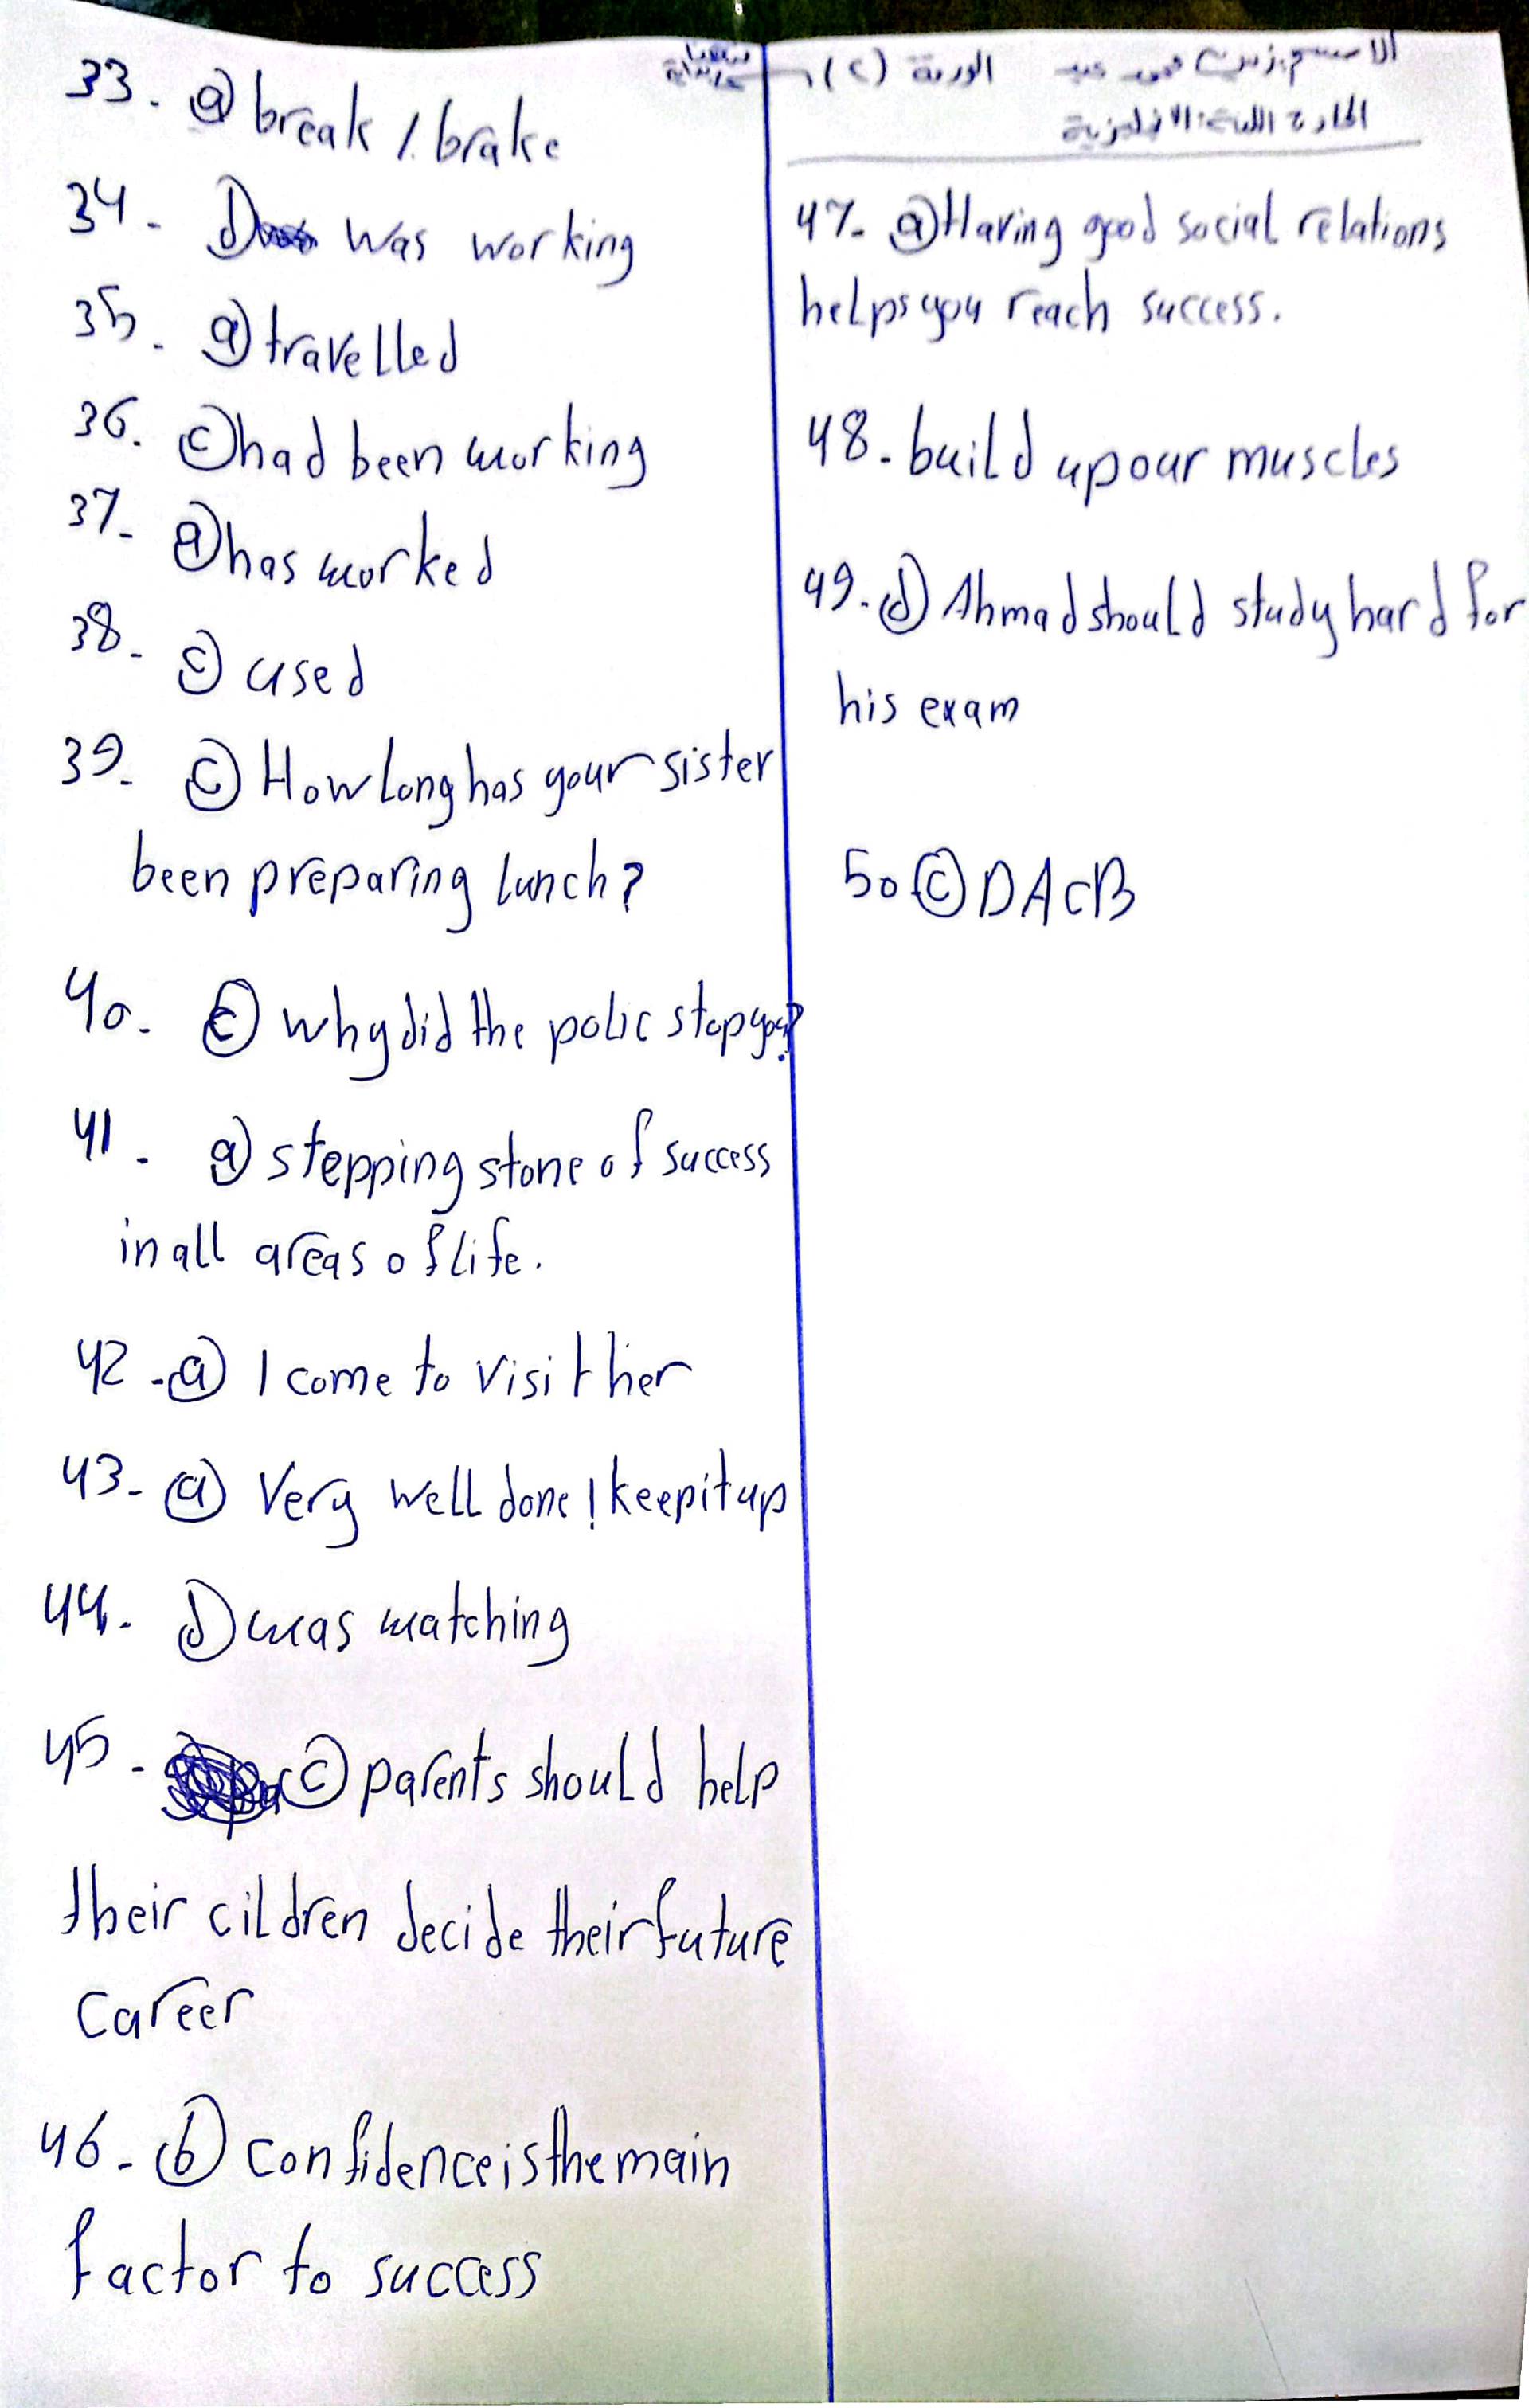 الاسم: زينب محمد عبد
الورقة (٢)
المادة: اللغة الانجليزية
33. ⓐ break / brake
34 - ⓓ was working
35. ⓐ travelled
36. ⓒ had been working
37- ⓐ has worked
38- ⓒ used
39- ⓒ How long has your sister
been preparing lunch?
40. ⓒ why did the polic stop you?
41. ⓐ stepping stone of success
in all areas of life.
42 - ⓐ I come to visit her
43- ⓐ Very well done! keep it up
44. ⓓ was watching
45 - ⓒ parents should help
their cildren decide their future
career
46- ⓑ confidence is the main
factor to success
47. ⓐ Having good social relations
helps you reach success.
48. build up our muscles
49. ⓓ Ahmad should study hard for
his exam
50 ⓒ DACB